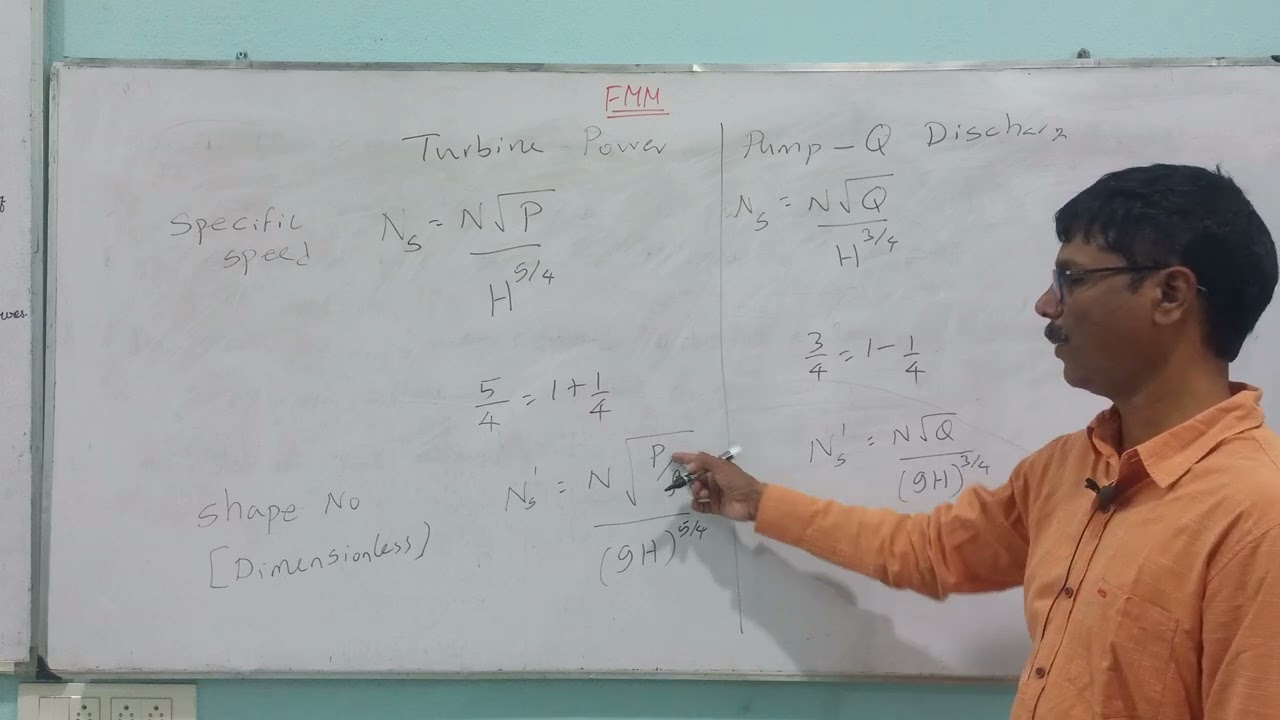 FMM
Turbine Power
Specific speed
N_s = N√P / H^5/4
5/4 = 1 + 1/4
Shape No
[Dimensionless]
N_s' = N√P/ / (gH)^5/4
Pump - Q
N_s = N√Q / H^3/4
3/4 = 1 - 1/4
N_s' = N√Q / (gH)^3/4